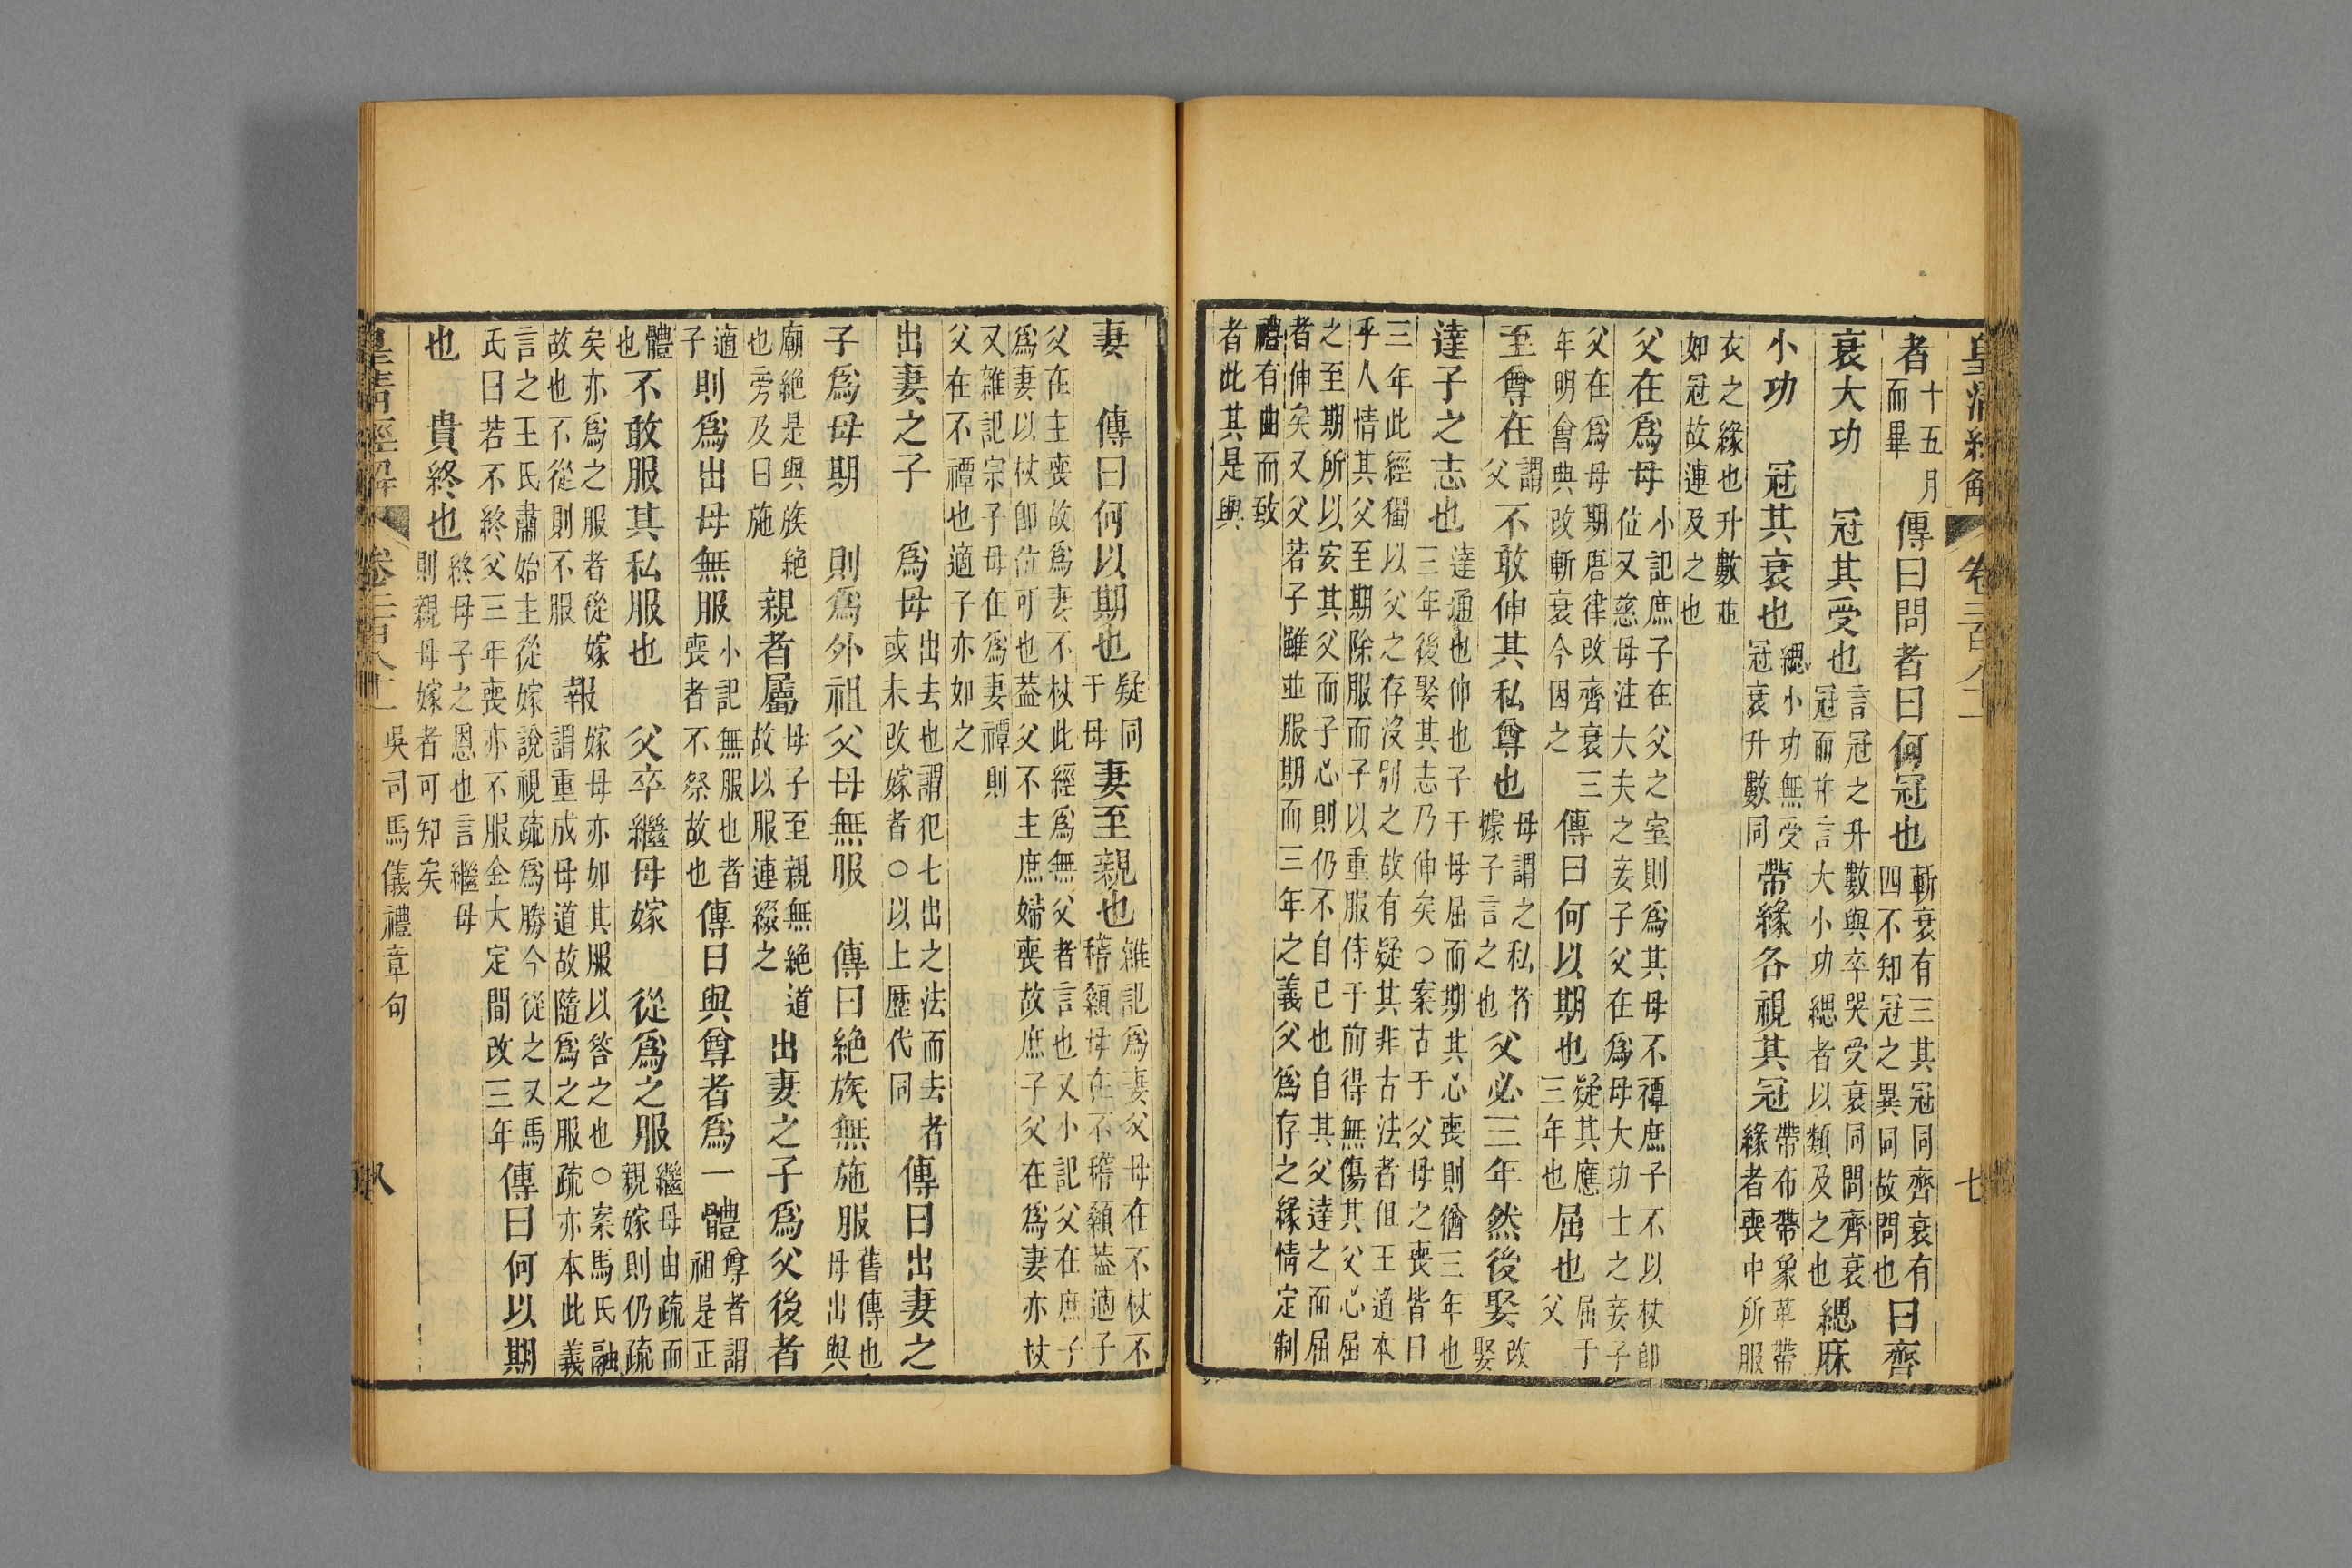 皇清經解 卷二百八十一 七
者十五月而畢傳曰問者曰何冠也斬衰有三其冠同齊衰有四不知冠之異同故問也曰齊
衰大功 冠其受也言冠之升數與卒哭受衰同問齊衰冠而并言大小功緦者以類及之也緦麻
小功 冠其衰也緦小功無受冠衰升數同帶緣各視其冠帶布帶象革帶緣者喪中所服
衣之緣也升數並如冠故連及之也
父在爲母小記庶子在父之室則爲其母不禫庶子不以杖卽位又慈母注大夫之妾子父在爲母大功士之妾子
父在爲母期唐律改齊衰三年明會典改斬衰今因之傳曰何以期也疑其應三年也屈也屈于父
至尊在謂父不敢伸其私尊也母謂之私者據子言之也父必三年然後娶改娶
達子之志也達通也伸也子于母屈而期其心喪則猶三年也三年後娶其志乃伸矣○案古于父母之喪皆曰
三年此經獨以父之存沒別之故有疑其非古法者但王道本乎人情其父至期除服而子以重服侍于前得無傷其父心屈
之至期所以安其父而子心則仍不自已也自其父達之而屈者伸矣又父若子雖並服期而三年之義父爲存之緣情定制
禮有曲而致者此其是與
妻 傳曰何以期也疑同于母妻至親也雜記爲妻父母在不杖不稽顙母在不稽顙葢適子
父在主喪故爲妻不杖此經爲無父者言也又小記父在庶子爲妻以杖卽位可也葢父不主庶婦喪故庶子父在爲妻亦杖
又雜記宗子母在爲妻禫則父在不禫也適子亦如之
出妻之子 爲母出去也謂犯七出之法而去者或未改嫁者○以上歷代同傳曰出妻之
子爲母期 則爲外祖父母無服 傳曰絕族無施服舊傳也母出與
廟絕是與族絕也旁及曰施親者屬母子至親無絕道故以服連綴之出妻之子爲父後者
適子則爲出母無服小記無服也者喪者不祭故也傳曰與尊者爲一體尊者謂祖是正
體也不敢服其私服也 父卒繼母嫁 從爲之服繼母由疏而親嫁則仍疏
矣亦爲之服者從嫁故也不從則不服報嫁母亦如其服以答之也○案馬氏融謂重成母道故隨爲之服疏亦本此義
言之王氏肅始主從嫁說視疏爲勝今從之又馬氏曰若不終父三年喪亦不服金大定間改三年傳曰何以期
也 貴終也終母子之恩也言繼母則親母嫁者可知矣
皇清經解 卷二百八十一 吳司馬儀禮章句 八